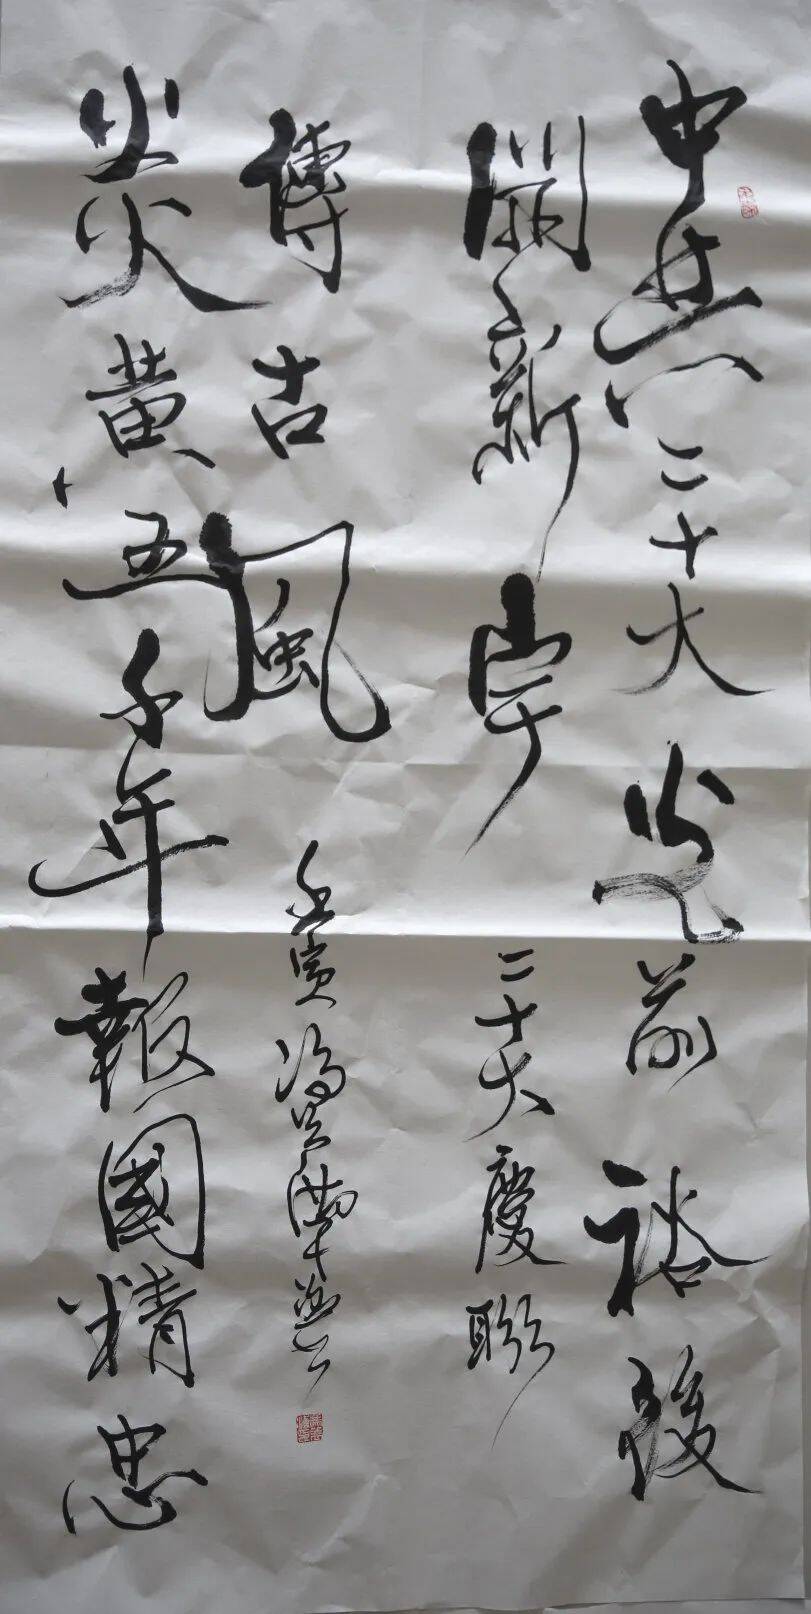 中共二十大光前裕後
開新宇
二十大慶聯
傳古風
壬寅馮
炎黄五千年報國精忠